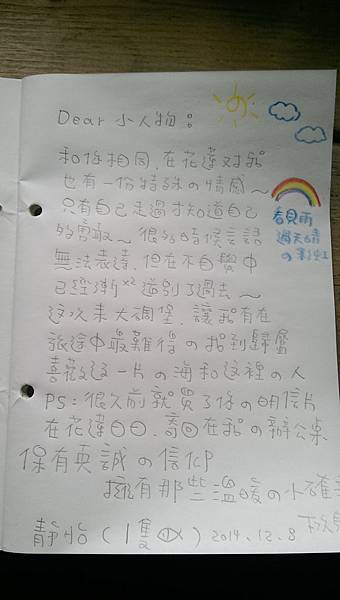 Dear 小人物：
和你相同，在花蓮對我
也有一份特殊の情感～
只有自己走過才知道自己
的勇敢～很多時候言語
無法表達，但在不自覺中
已經漸x2道別了過去～
這次来大 堡，讓我有在
旅途中最難得の找到歸屬
喜歡這一片の海和這裡の人
PS：很久前就買了你の明信片
在花蓮 ．寄回在我の辦公桌
保有真誠の信仰
擁有那些溫暖の小確
靜怡（1隻 ）2014.12.8
看見雨
過天晴
の彩虹